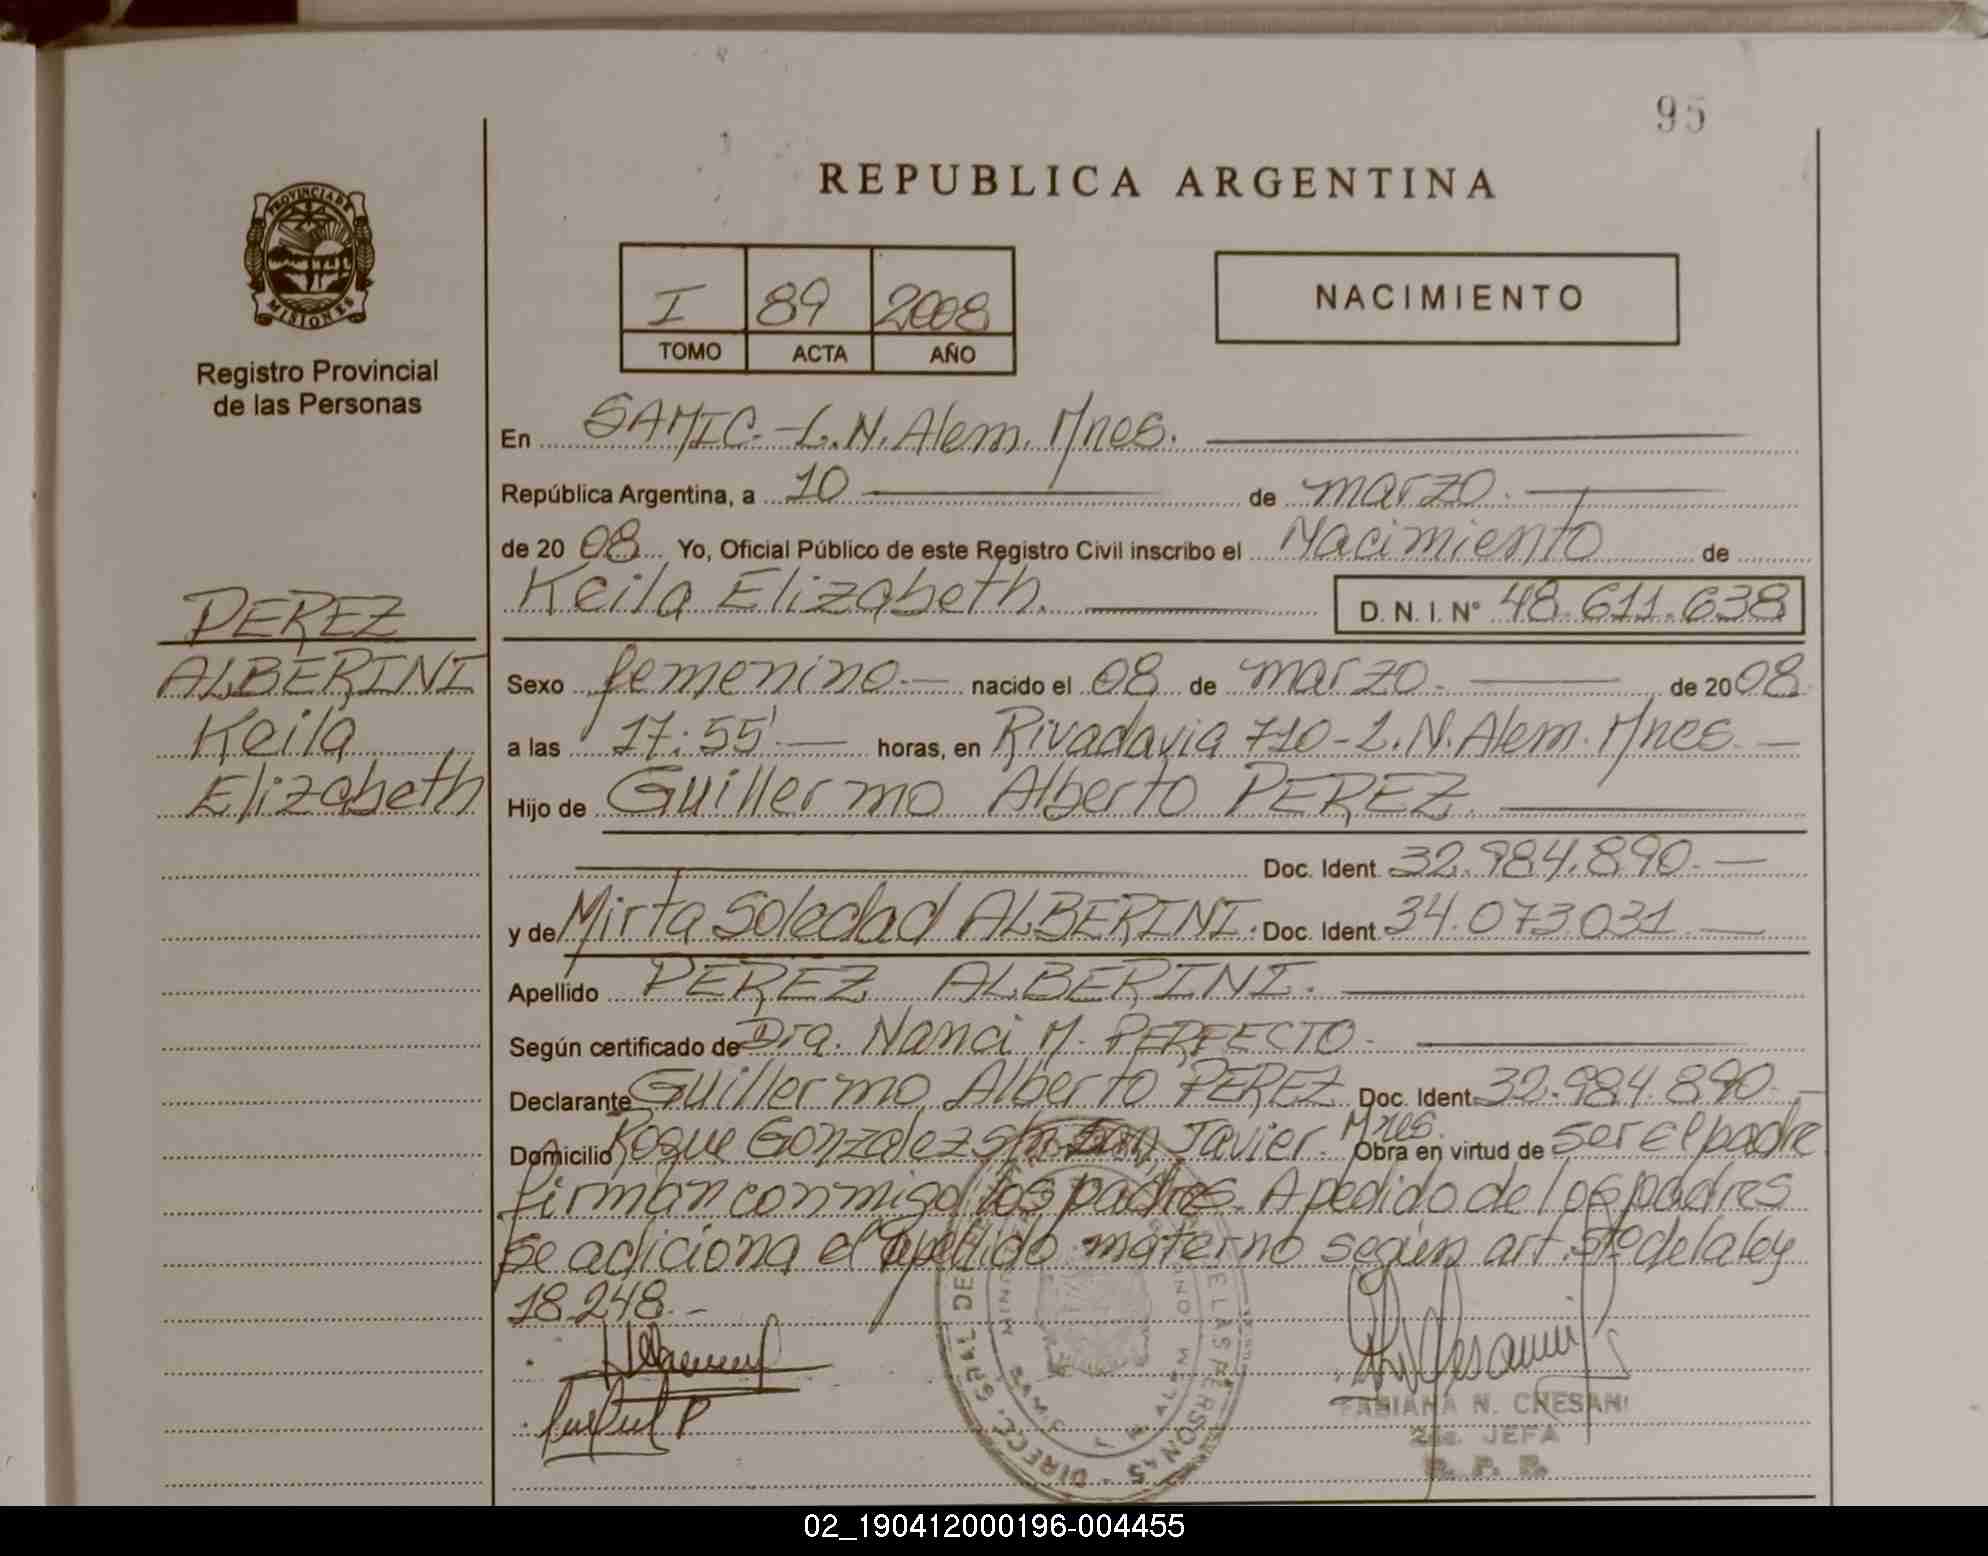 95
REPUBLICA ARGENTINA
PROVINCIA DE
MISIONES
Registro Provincial
de las Personas
I 89 2008
TOMO ACTA AÑO
NACIMIENTO
En SAMIC.-L.N.Alem.Mnes.
República Argentina, a 10 de marzo.
de 2008 Yo, Oficial Público de este Registro Civil inscribo el Nacimiento de
Keila Elizabeth. D. N. I. Nº 48.611.638
PEREZ
ALBERINI
Keila
Elizabeth
Sexo femenino.- nacido el 08 de marzo. de 2008
a las 17:55' horas, en Rivadavia 710-L.N.Alem.Mnes.
Hijo de Guillermo Alberto PEREZ.
Doc. Ident. 32.984.890.-
y de Mirta Soledad ALBERINI. Doc. Ident. 34.073.031
Apellido PEREZ ALBERINI.
Según certificado de Dra. Nanci M. PERFECTO.-
Declarante Guillermo Alberto PEREZ Doc. Ident. 32.984.890.-
Domicilio Roque Gonzalez s/n San Javier. Mnes. Obra en virtud de ser el padre
firman conmigo los padres. A pedido de los padres
se adiciona el apellido materno según art. 5to de la ley
18.248.-
P
DIRECC. GRAL DE LAS PERSONAS
FABIANA N. CHESANI
2da. JEFA
R. P. P.
02_190412000196-004455